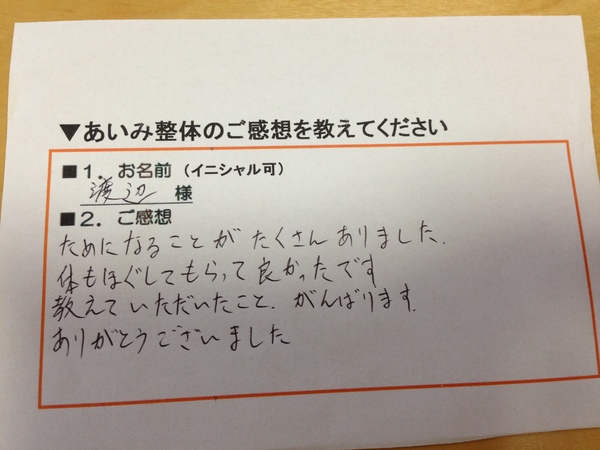 ▼あいみ整体のご感想を教えてください
■1．お名前（イニシャル可）
渡辺 様
■2．ご感想
ためになることがたくさんありました.
体もほぐしてもらって良かったです
教えていただいたこと.がんばります.
ありがとうございました